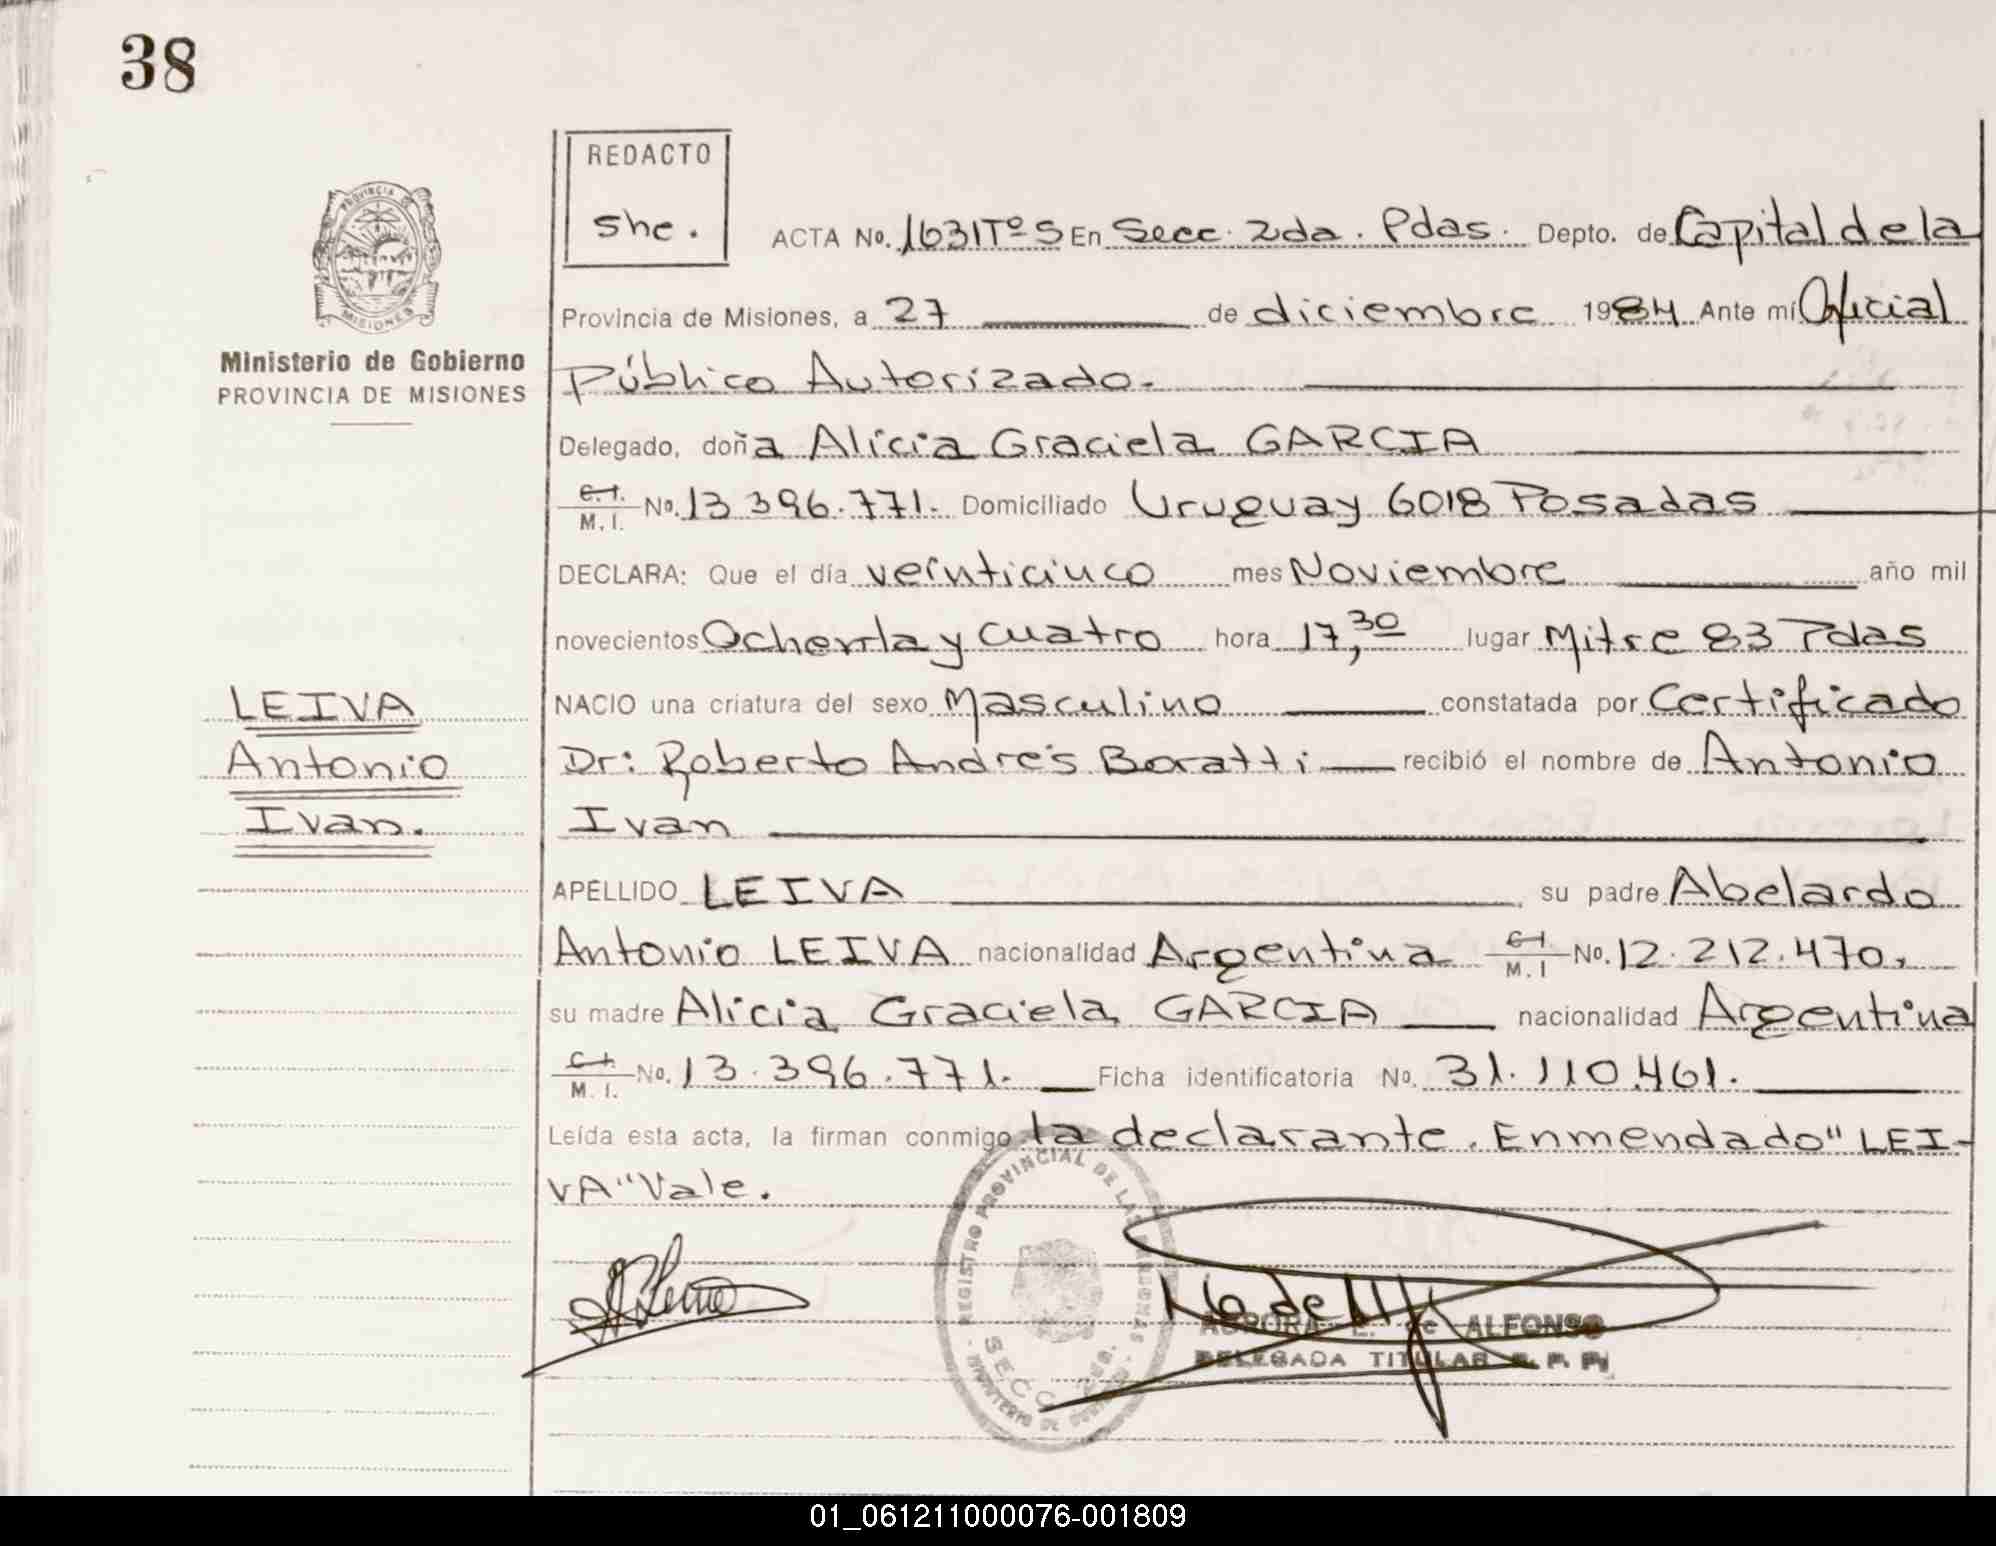 38
REDACTO
she.
PROVINCIA DE
MISIONES
Ministerio de Gobierno
PROVINCIA DE MISIONES
ACTA No. 1631 Tº 5 En Secc. 2da. Pdas. Depto. de Capital de la
Provincia de Misiones, a 27 de diciembre 1984 Ante mí Oficial
Público Autorizado.
Delegado, doña Alicia Graciela GARCIA
C.I. M.I. No. 13 396.771. Domiciliado Uruguay 6018 Posadas
DECLARA: Que el día veinticinco mes Noviembre año mil
novecientos Ochenta y cuatro hora 17,30 lugar Mitre 83 Pdas
LEIVA
NACIO una criatura del sexo Masculino constatada por Certificado
Antonio
Dr: Roberto Andrés Boratti recibió el nombre de Antonio
Ivan.
Ivan
APELLIDO LEIVA, su padre Abelardo
Antonio LEIVA nacionalidad Argentina C.I. M.I No. 12.212.470,
su madre Alicia Graciela GARCIA nacionalidad Argentina
C.I. M.I. No. 13.396.771. Ficha identificatoria No. 31.110.461.
Leída esta acta, la firman conmigo la declarante. Enmendado "LEI-
VA" Vale.
REGISTRO PROVINCIAL DE LAS PERSONAS
MINISTERIO DE GOBIERNO
SECC.
AURORA L. de ALFONSO
DELEGADA TITULAR R. P. P.
01_061211000076-001809